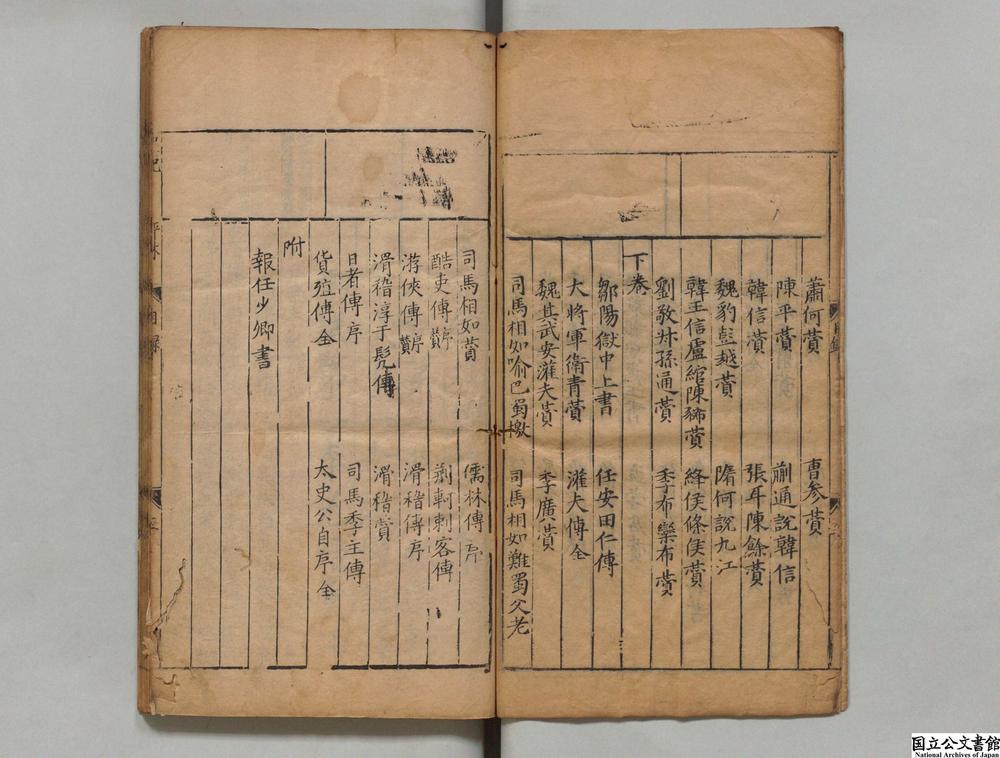 蕭何贊　曹參贊
陳平贊　蒯通說韓信
韓信贊　張耳陳餘贊
魏豹彭越贊　隋何說九江
韓王信盧綰陳豨贊　絳侯條侯贊
劉敬叔孫通贊　季布欒布贊
下卷
鄒陽獄中上書　任安田仁傳
大將軍衛青贊　灌夫傳全
魏其武安灌夫贊　李廣贊
司馬相如喻巴蜀檄　司馬相如難蜀父老
司馬相如贊　儒林傳序
酷吏傳贊序　荊軻刺客傳
游俠傳贊序　滑稽傳序
滑稽淳于髡傳　滑稽贊
日者傳序　司馬季主傳
貨殖傳全　太史公自序全
附
報任少卿書
国立公文書館
National Archives of Japan